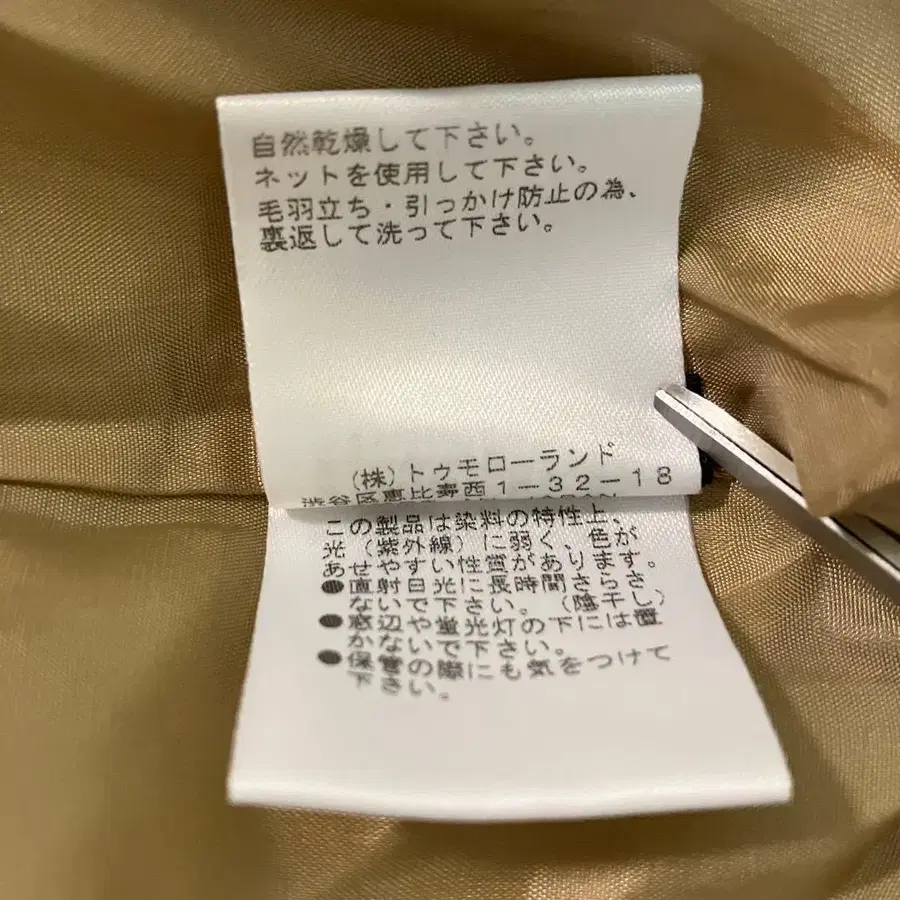 自然乾燥して下さい。
ネットを使用して下さい。
毛羽立ち・引っかけ防止の為、
裏返して洗って下さい。
(株)トゥモローランド
渋谷区恵比寿西1-32-18
この製品は染料の特性上、
光(紫外線)に弱く、色が
あせやすい性質があります。
●直射日光に長時間さらさ
ないで下さい。(陰干し)
●窓辺や蛍光灯の下には置
かないで下さい。
●保管の際にも気をつけて
下さい。